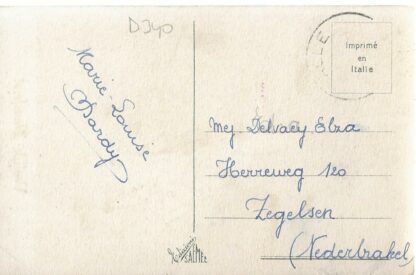 D340
Marie-Louise
Dardy
LE
Imprimé
en
Italie
Mej Delvaey Elza
Herreweg 120
Zegelsen
(Nederbrakel)